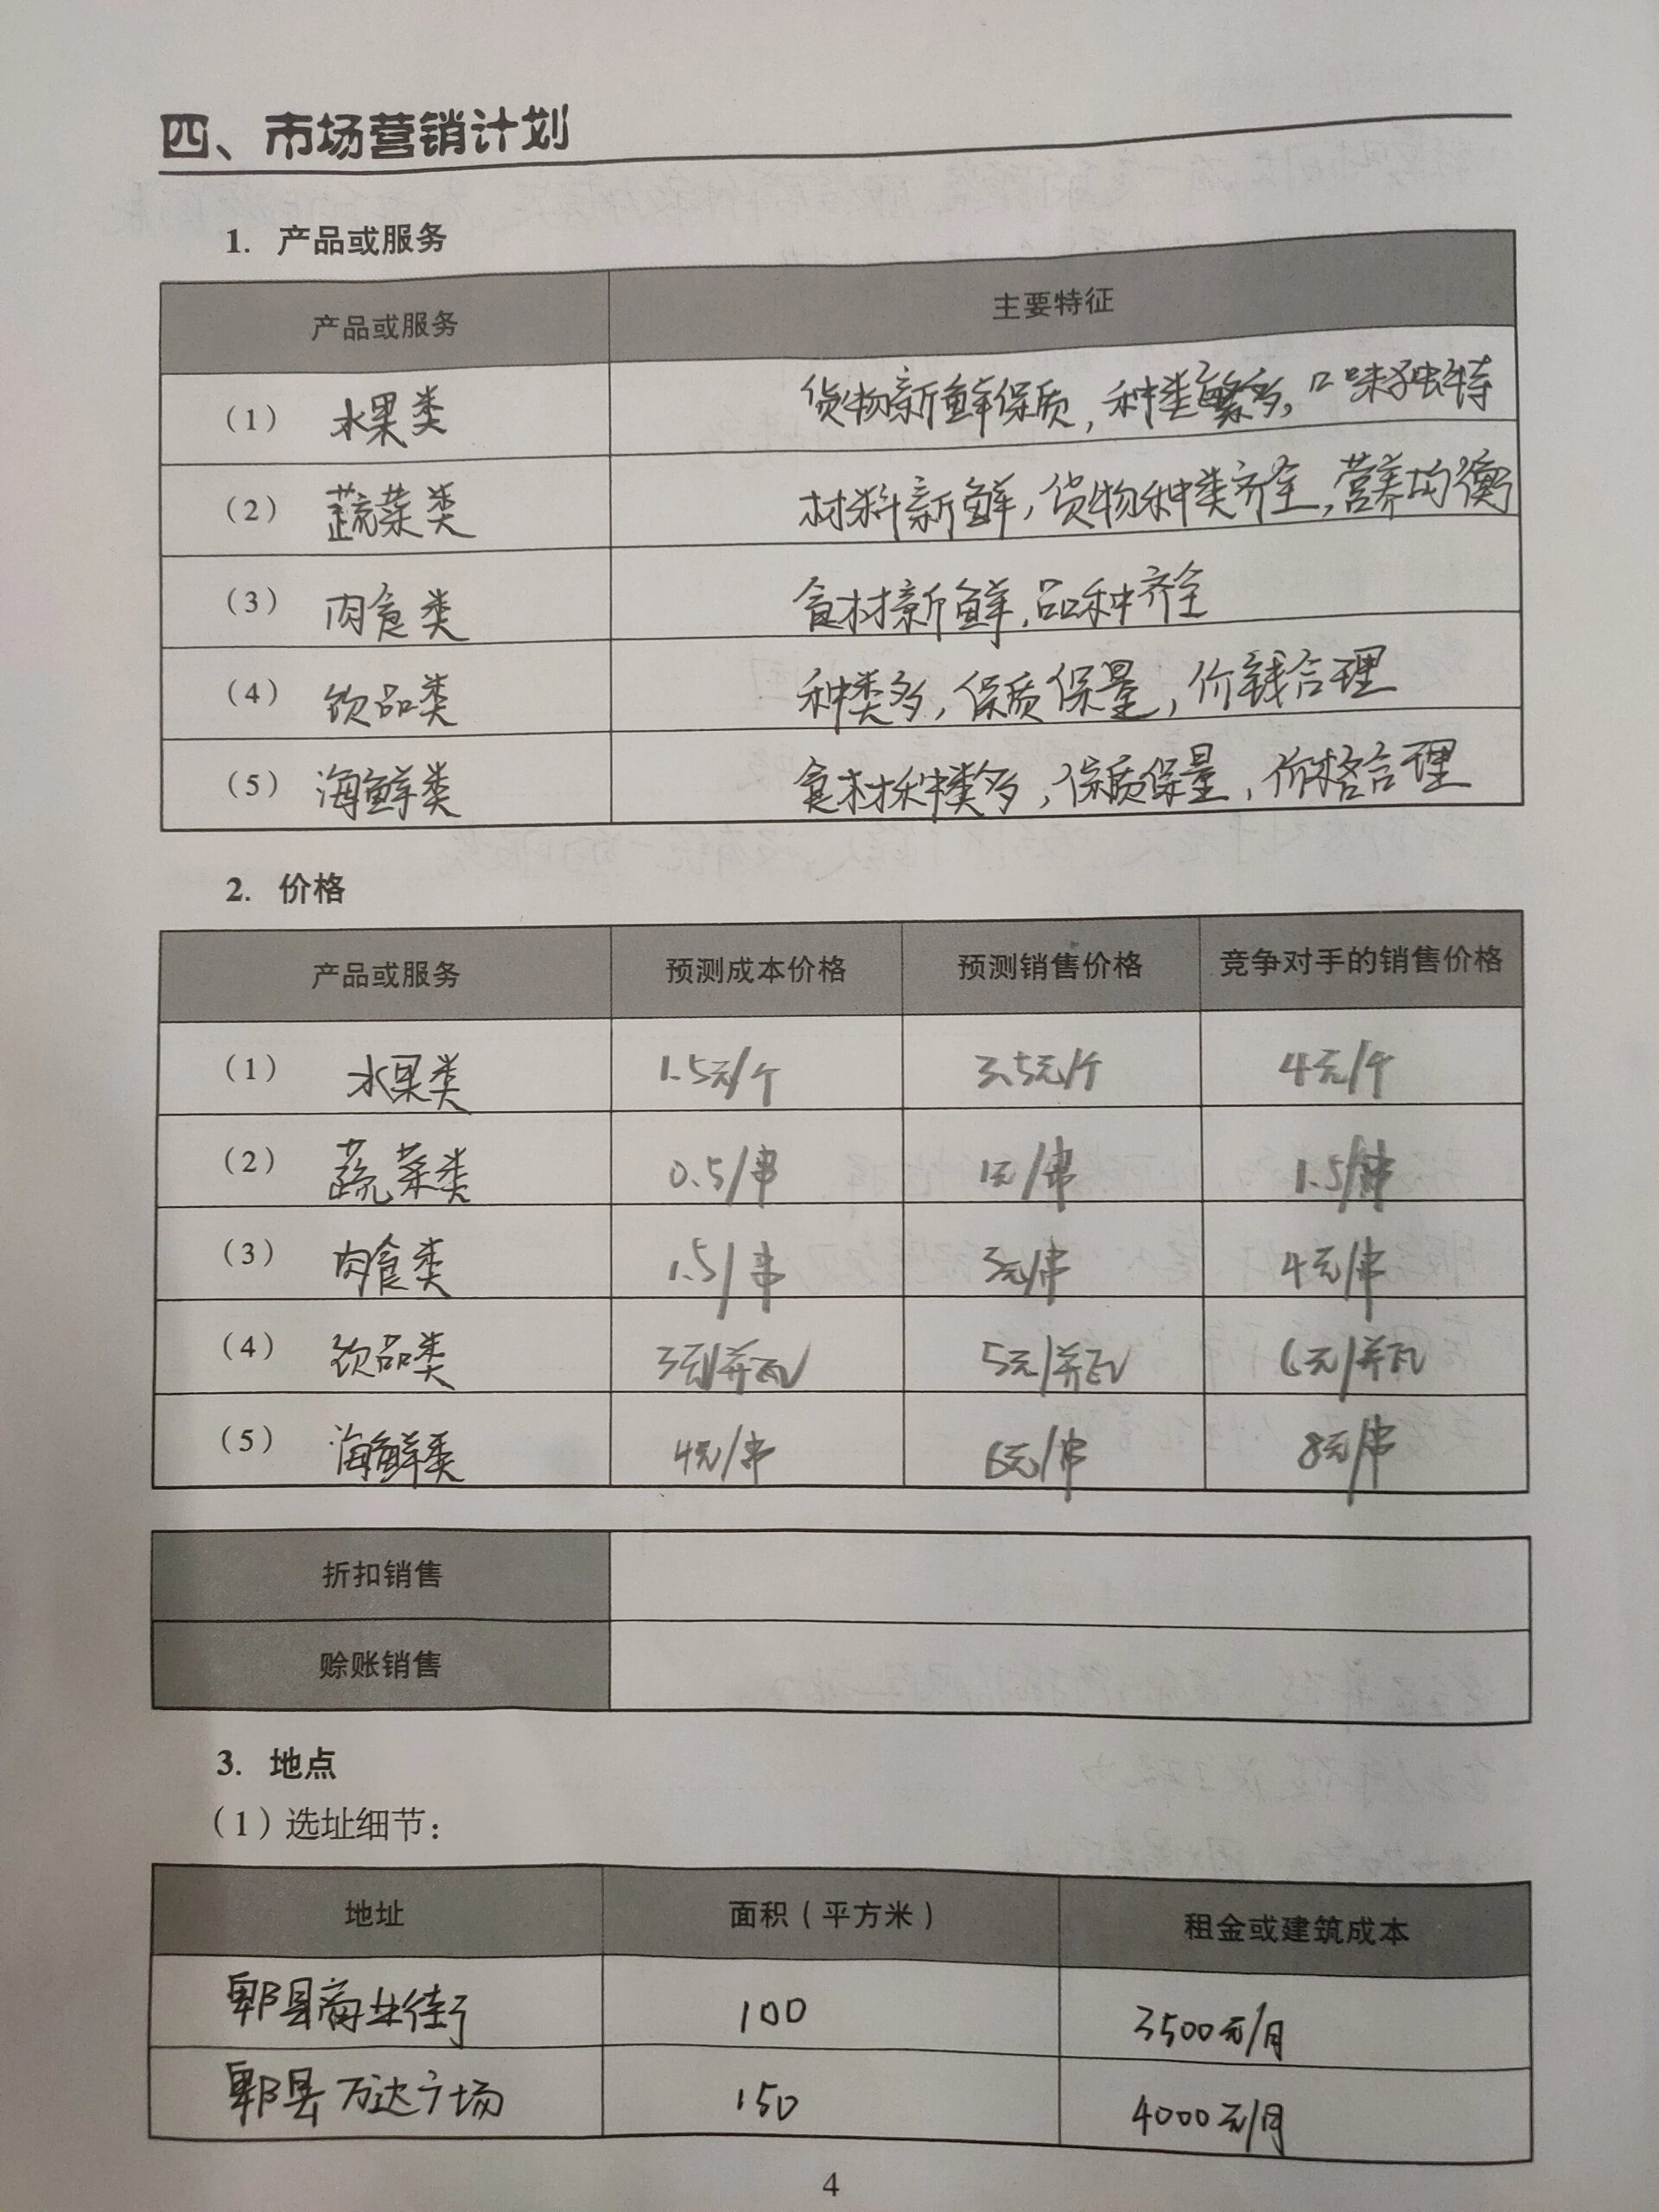 四、市场营销计划
1. 产品或服务
产品或服务 主要特征
（1） 水果类 货物新鲜保质，种类繁多，口味独特
（2） 蔬菜类 材料新鲜，货物种类齐全，营养均衡
（3） 肉食类 食材新鲜，品种齐全
（4） 饮品类 种类多，保质保量，价钱合理
（5） 海鲜类 食材种类多，保质保量，价格合理
2. 价格
产品或服务 预测成本价格 预测销售价格 竞争对手的销售价格
（1） 水果类 1.5元/个 3.5元/个 4元/个
（2） 蔬菜类 0.5/串 1元/串 1.5/串
（3） 肉食类 1.5/串 3元/串 4元/串
（4） 饮品类 3元/瓶 5元/瓶 6元/瓶
（5） 海鲜类 4元/串 6元/串 8元/串
折扣销售
赊账销售
3. 地点
（1）选址细节：
地址 面积（平方米） 租金或建筑成本
郫县商业街 100 3500元/月
郫县万达广场 150 4000元/月
4